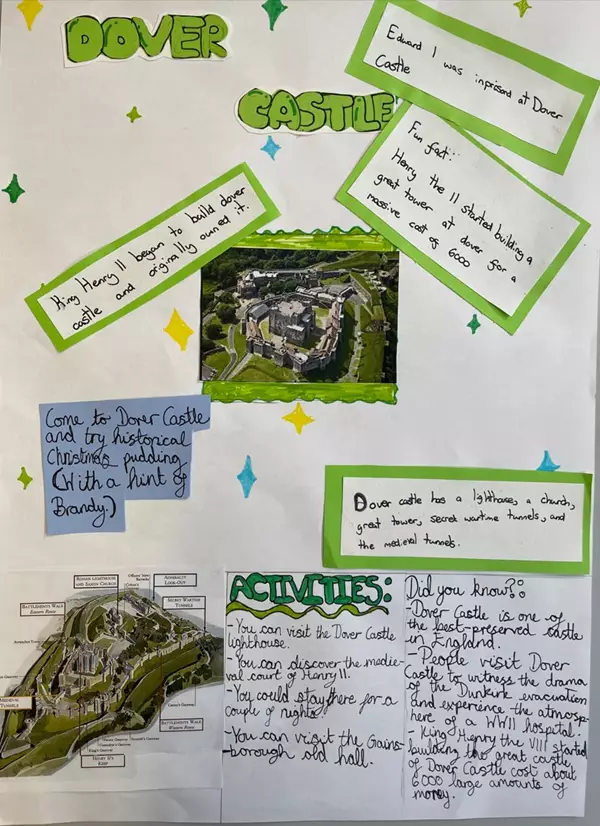 DOVER
CASTLE
Edward I was inprisond at Dover
Castle
Fun fact:
Henry the II started building a
great tower at dover for a
massive cost of 6000
King Henry II began to build dover
castle and originally owned it.
Come to Dover Castle
and try historical
Christmas pudding
(With a hint of
Brandy.)
Dover castle has a lighthouse, a church,
great tower, secret wartime tunnels, and
the medieval tunnels.
ROMAN LIGHTHOUSE
AND SAXON CHURCH
ADMIRALTY
LOOK-OUT
BATTLEMENTS WALK
SECRET WARTIME
TUNNELS
MEDIEVAL
TUNNELS
BATTLEMENTS WALK
HENRY II'S
KEEP
ACTIVITIES:
- You can visit the Dover Castle
lighthouse.
- You can discover the medie-
val court of Henry II.
- You could stay there for a
couple of nights.
- You can visit the Gains-
-borough old hall.
Did you know?:
- Dover Castle is one of
the best-preserved castle
in England.
- People visit Dover
Castle to witness the drama
of the Dunkirk evacuation
and experience the atmosp-
here of a WWII hospital.
- King Henry the VIII started
building the great castle
of Dover Castle cost about
6000 large amounts of
money.